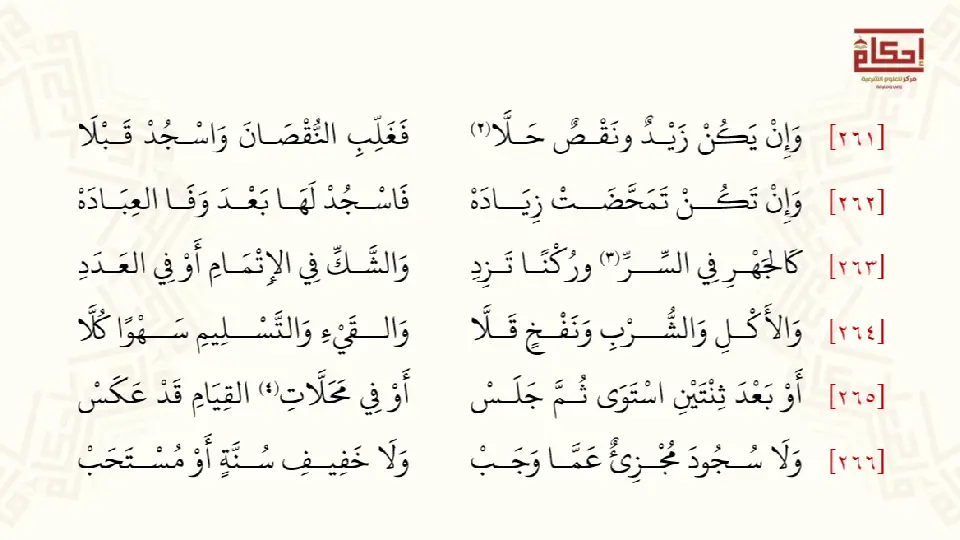 إحكام
مركز للعلوم الشرعية
[٢٦١] وَإِنْ يَـكُـنْ زَيْـدٌ ونَـقْـصٌ حَـلَّا(٢) فَـغَـلِّـبِ النُّقْصَـانَ وَاسْـجُـدْ قَـبْـلَا
[٢٦٢] وَإِنْ تَـكُـنْ تَمَحَّضَـتْ زِيَـادَهْ فَاسْـجُـدْ لَهَـا بَعْـدَ وَفَـا العِبَـادَهْ
[٢٦٣] كَالجَهْـرِ فِي السِّـرِّ(٣) ورُكْنًـا تَـزِدِ وَالشَّـكِّ فِي الإِتْمَـامِ أَوْ فِي العَـدَدِ
[٢٦٤] وَالأَكْـلِ وَالشُّـرْبِ وَنَفْـخٍ قَـلَّا وَالـقَيْءِ وَالتَّسْـلِيمِ سَـهْوًا كُلَّا
[٢٦٥] أَوْ بَعْدَ ثِنْتَيْنِ اسْتَوَى ثُـمَّ جَلَـسْ أَوْ فِي مَحَلَّاتِ(٤) القِيَامِ قَدْ عَكَسْ
[٢٦٦] وَلَا سُـجُودَ مُجْـزِئٌ عَمَّـا وَجَـبْ وَلَا خَفِيـفِ سُـنَّةٍ أَوْ مُسْـتَحَبْ